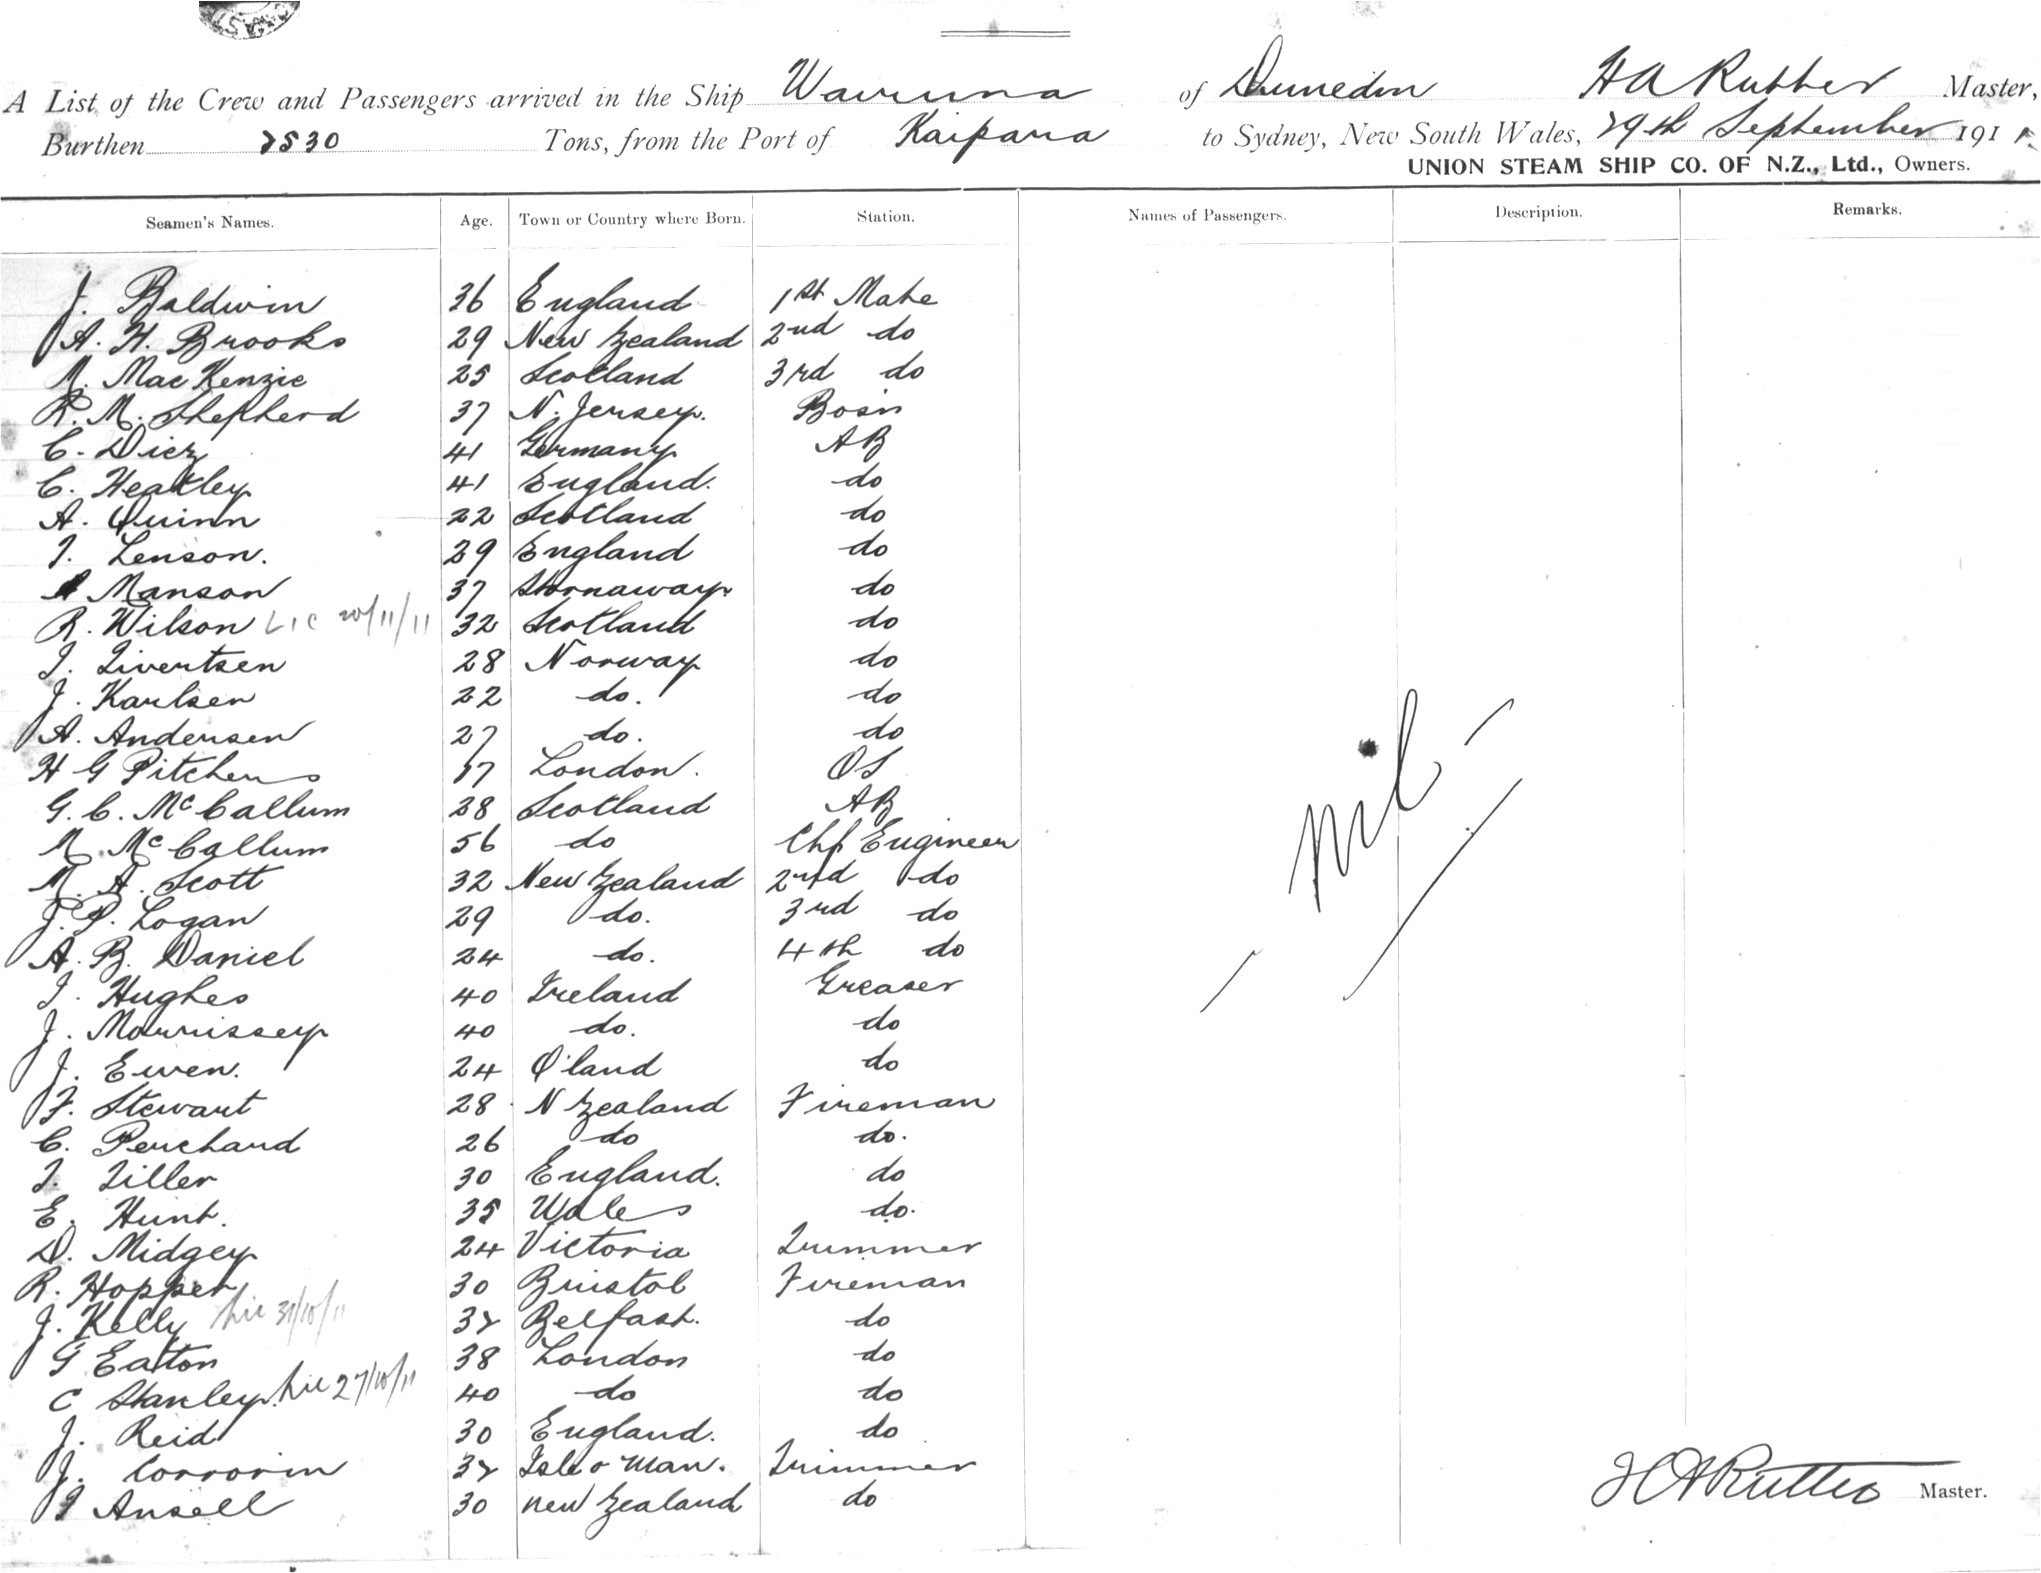 A List of the Crew and Passengers arrived in the Ship Wairuna of Dunedin H A Rutter Master,
Burthen 2530 Tons, from the Port of Kaipara to Sydney, New South Wales, 29th September 1911
UNION STEAM SHIP CO. OF N.Z., Ltd., Owners.
Seamen's Names. Age. Town or Country where Born. Station. Names of Passengers. Description. Remarks.
J. Baldwin 36 England 1st Mate
A. H. Brooks 29 New Zealand 2nd do
M. MacKenzie 25 Scotland 3rd do
R. M. Shepherd 37 N. Jersey. Bosn
C. Diez 41 Germany AB
C. Heatley 41 England. do
A. Quinn 22 Scotland do
T. Lenson. 29 England do
A Manson 37 Stornaway do
R. Wilson Lic 20/11/11 32 Scotland do
T. Sivertsen 28 Norway do
J. Karlsen 22 do. do
A. Andersen 27 do. do
H G Pitchers 17 London. OS
G. C. McCallum 28 Scotland AB
M. McCallum 56 do Chf Engineer
M. A. Scott 32 New Zealand 2nd do
J. P. Logan 29 do. 3rd do
A. B. Daniel 24 do. 4th do
T. Hughes 40 Ireland Greaser
J. Morrissey 40 do. do
J. Ewen. 24 Q'land do
F. Stewart 28 N Zealand Fireman
C. Perchard 26 do do.
T. Tiller 30 England. do
E. Hunt. 35 Wales do.
D. Midgey 24 Victoria Trimmer
R. Hopper 30 Bristol Fireman
J. Kelly Lic 31/10/11 32 Belfast. do
G Eaton 38 London do
C Stanley. Lic 27/10/11 40 do do
J. Reid 30 England. do
J. Corrorin 32 Isle o Man. Trimmer
Ansell 30 New Zealand do
- nil -
H A Rutter Master.